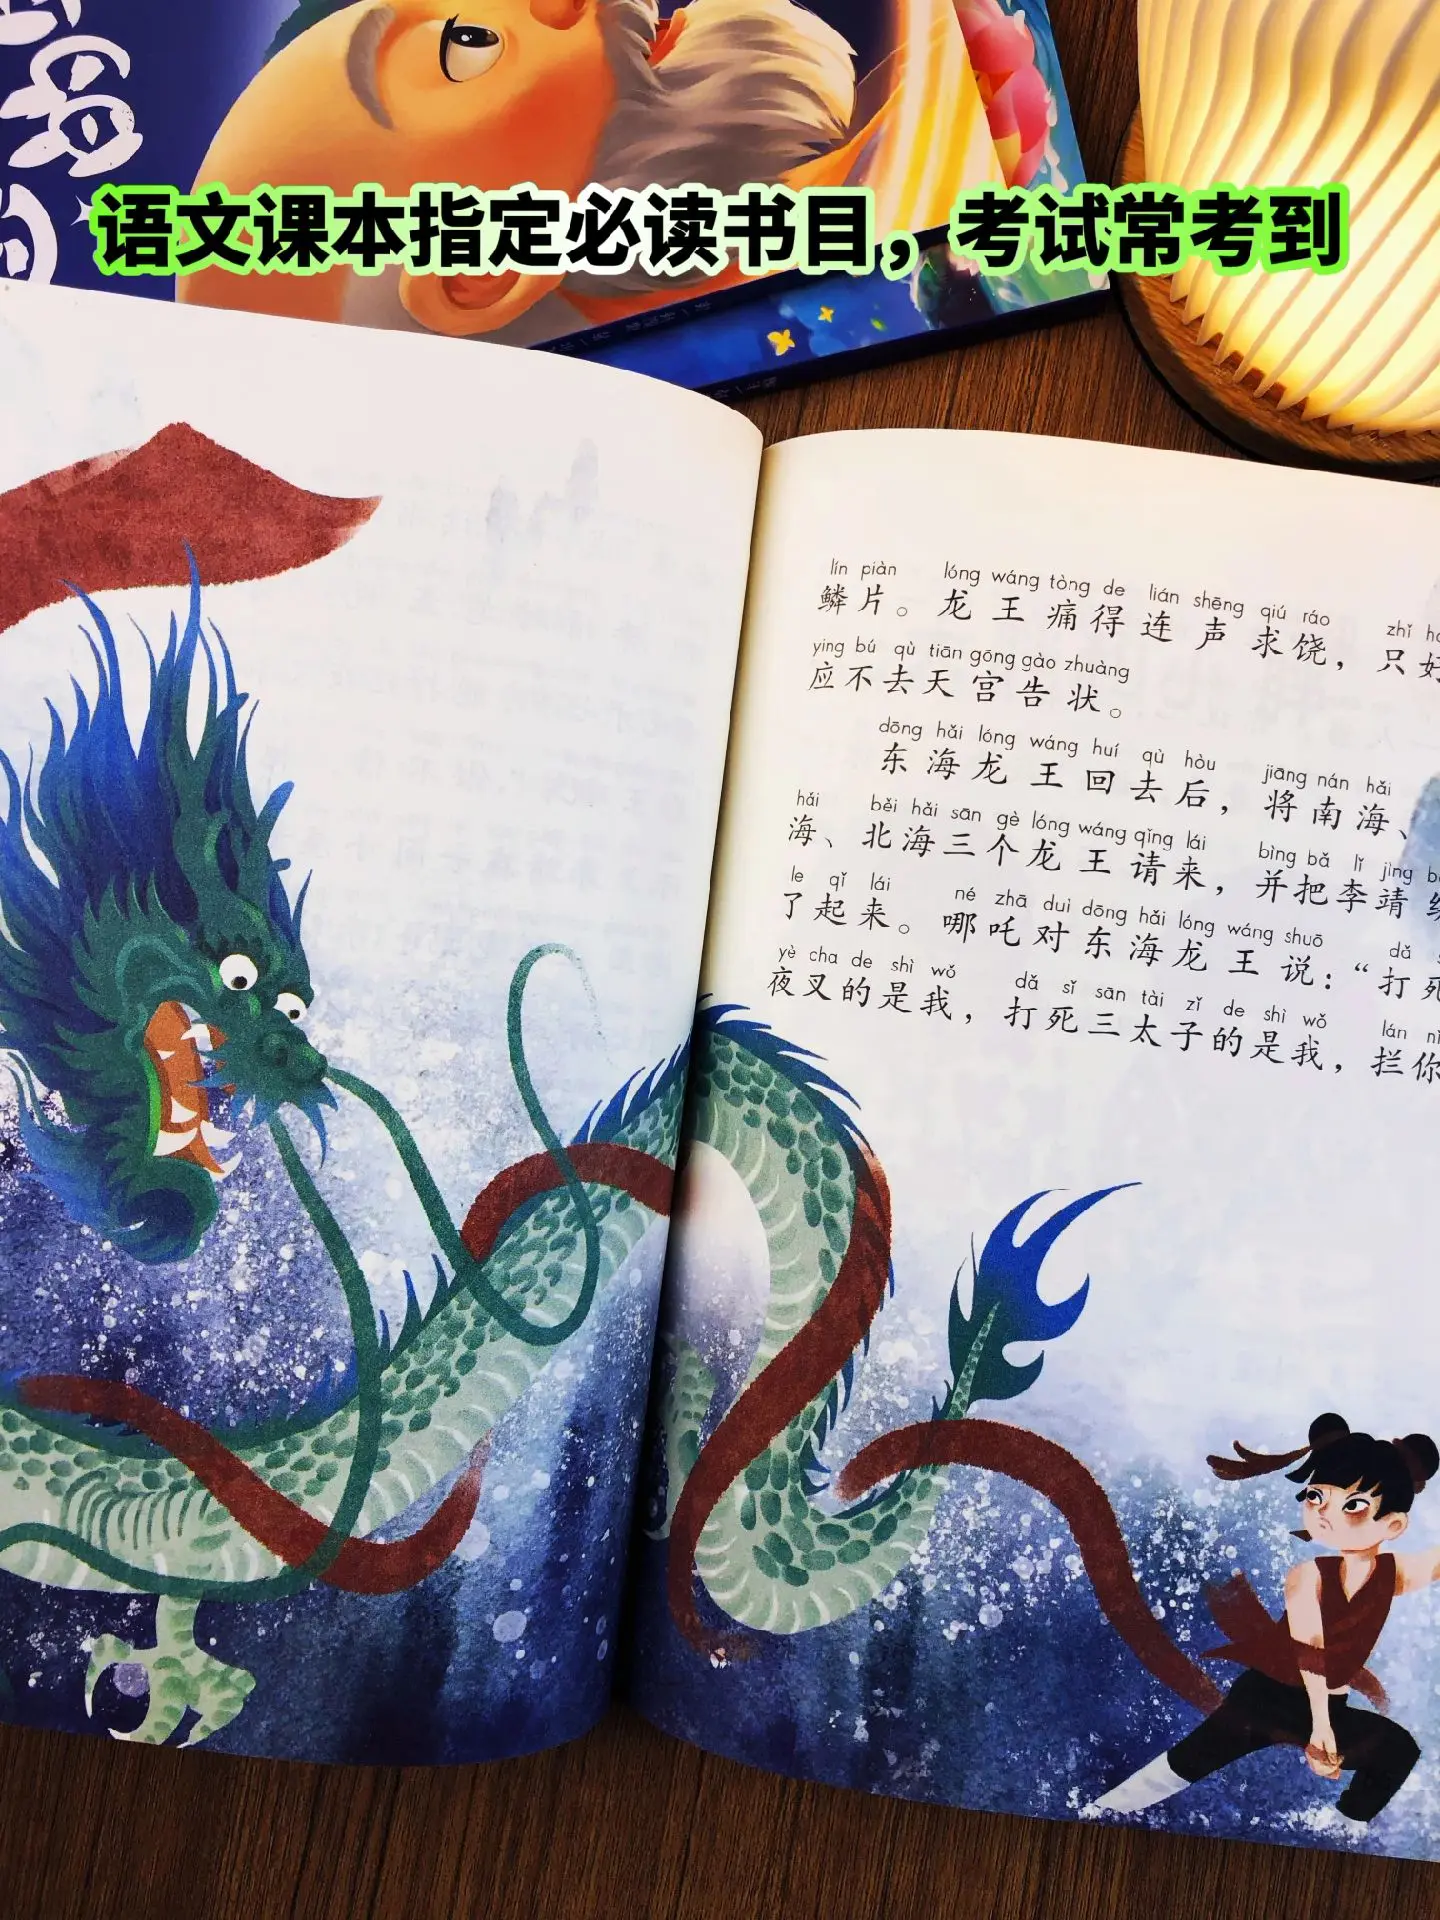 语文课本指定必读书目，考试常考到
lín piàn lóng wáng tòng de lián shēng qiú ráo zhǐ
鳞片。龙王痛得连声求饶，只好
ying bú qù tiān gōng gào zhuàng
应不去天宫告状。
dōng hǎi lóng wáng huí qù hòu jiāng nán hǎi
东海龙王回去后，将南海、
hái běi hǎi sān gè lóng wáng qǐng lái bìng bǎ lǐ jìng
海、北海三个龙王请来，并把李靖
le qǐ lái né zhā duì dōng hǎi lóng wáng shuō dǎ
了起来。哪吒对东海龙王说：“打死
yè cha de shì wǒ dǎ sǐ sān tài zǐ de shì wǒ lán
夜叉的是我，打死三太子的是我，拦你